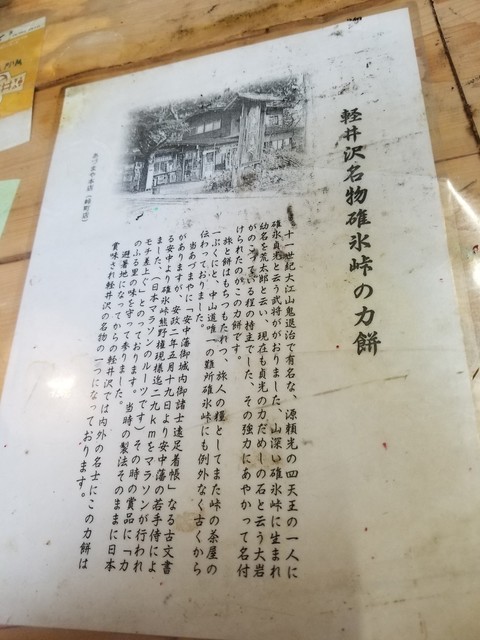 軽井沢名物碓氷峠の力餅
十一世紀大江山鬼退治で有名な、源頼光の四天王の一人に
碓氷貞光と云う武将がおりました、山深い碓氷峠に生まれ
幼名を荒太郎と云い、現在も貞光の力だめしの石と云う大岩
がのこっている程の持主でした、その強力にあやかって名付
けられたのがこの力餅です。
旅と餅はもちつもたれつ、旅人の糧としてまた峠の茶屋の
一ぷくにと、中山道唯一の難所碓氷峠にも例外なく古くから
伝わっておりました。
当あづまやに「安中藩御城内御諸士遠足着帳」なる古文書
がありますが、安政二年五月十九日より安中藩の若手侍によ
る安中より碓氷峠熊野権現様迄二九kmをマラソンが行われ
ました、(日本マラソンのルーツです)その時の賞品に「力
モチ差上ぐ」とのっております。当時の製法そのままに日本
のふる里の味を守って参りました。
避暑地になってからの軽井沢では内外の名士にこの力餅は
賞味され軽井沢の名物の一つになっております。
あづまや本店(峠町店)